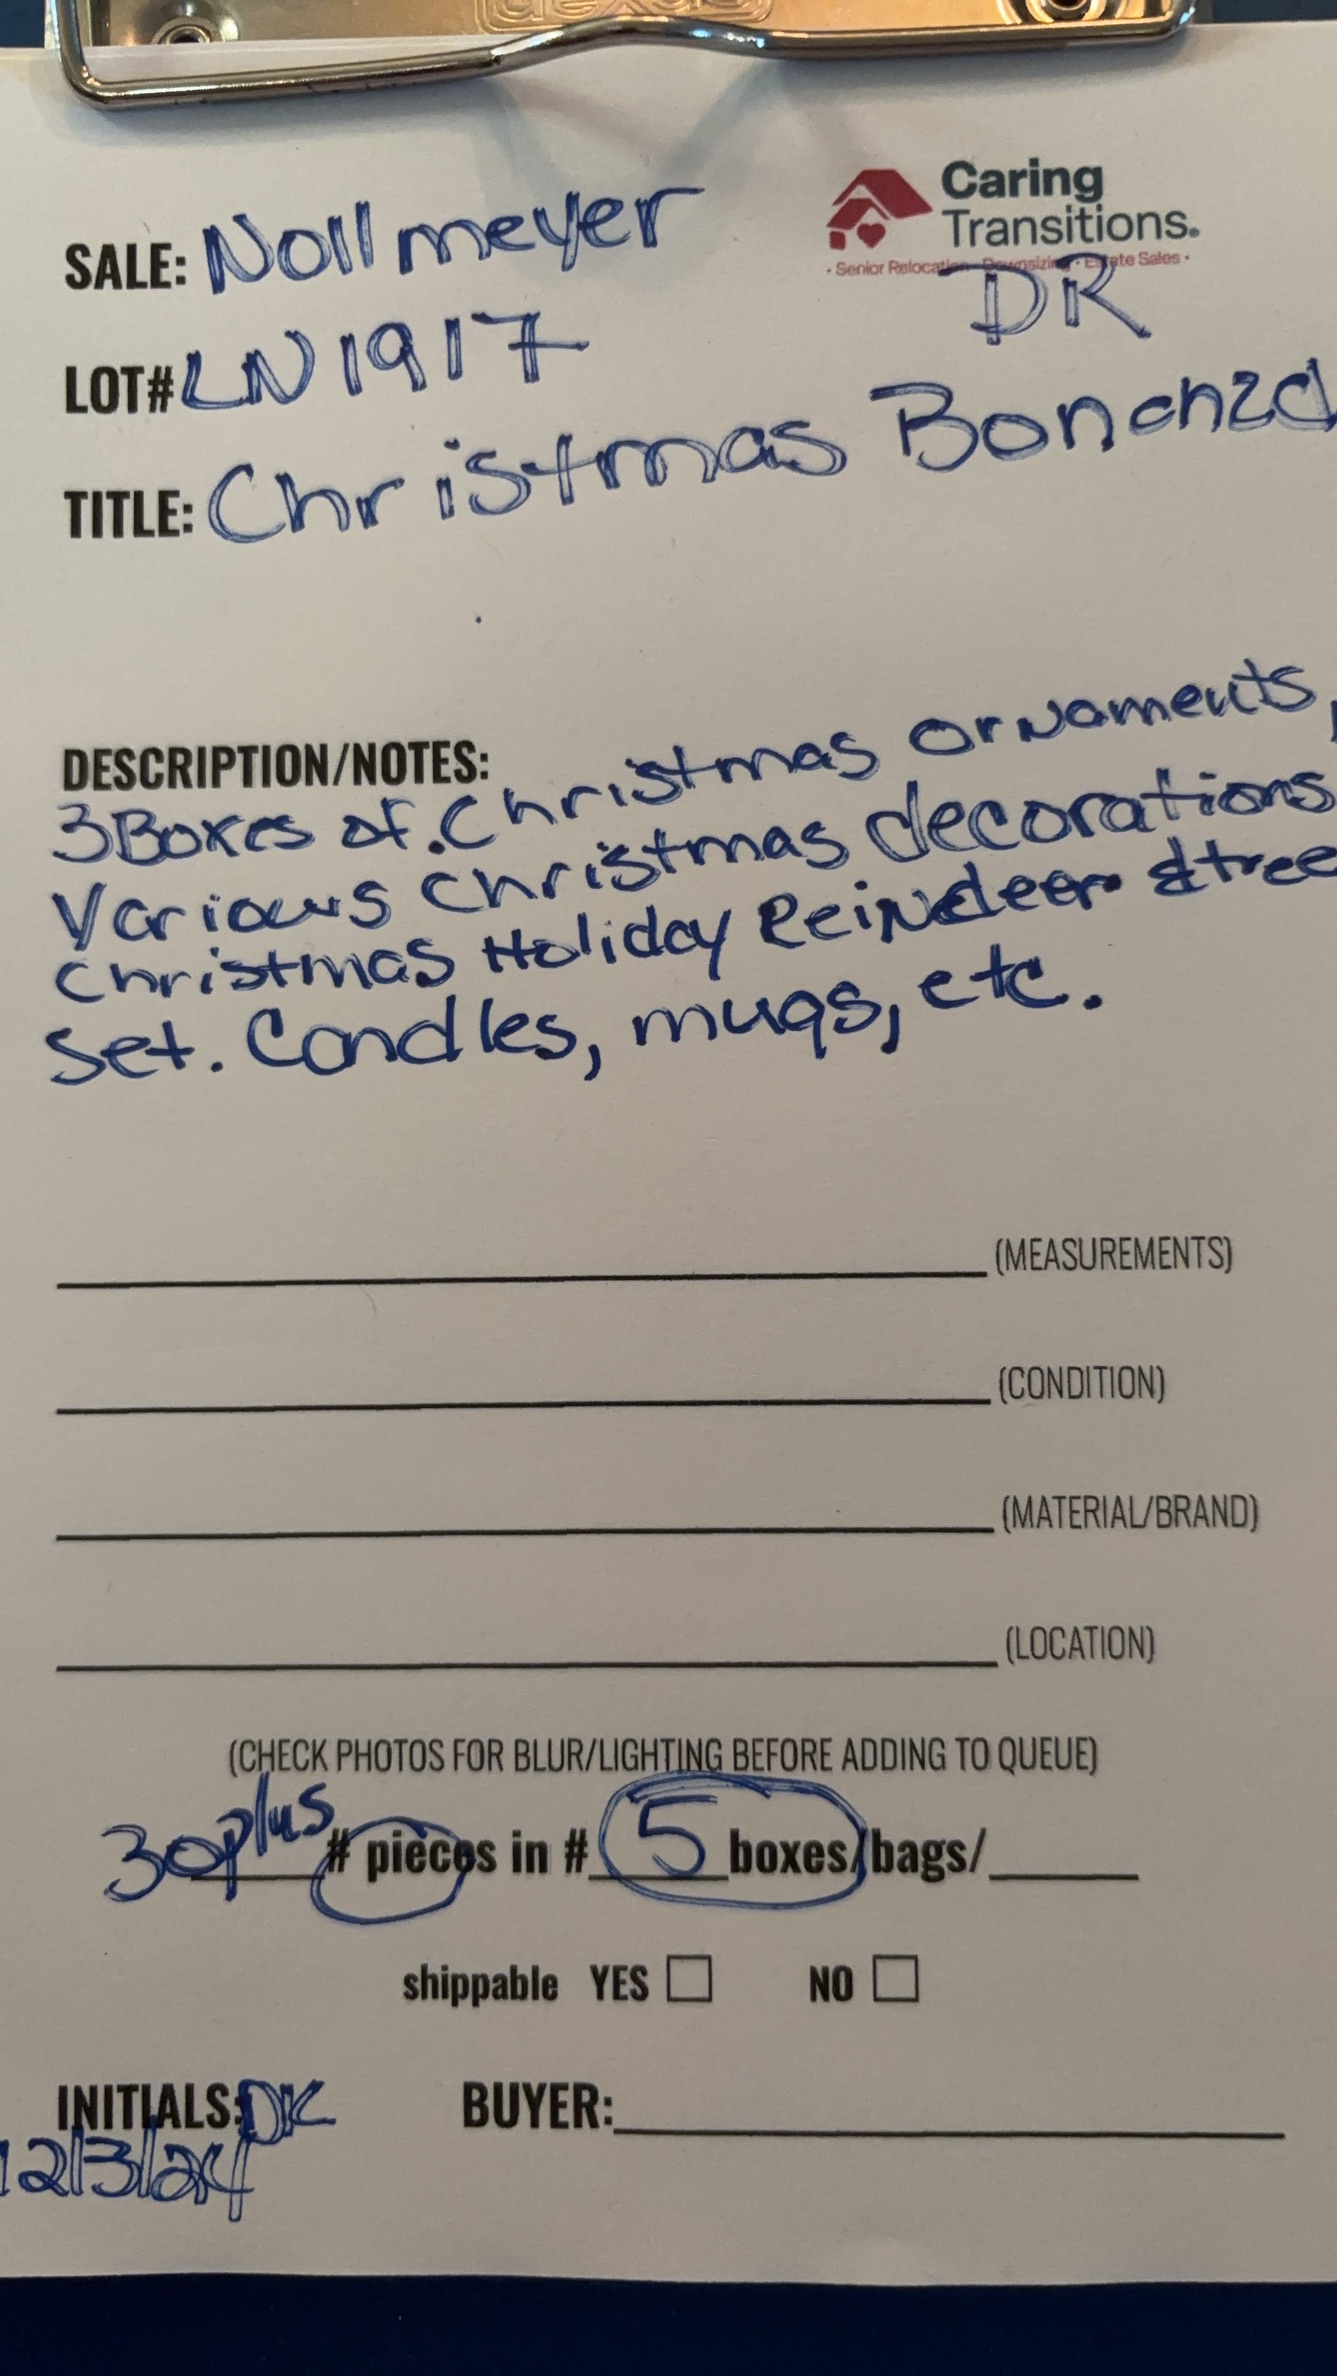 dexas
Caring
Transitions.
· Senior Relocation · Downsizing · Estate Sales ·
SALE: Nollmeyer
DR
LOT# LN1917
TITLE: Christmas Bonanza
DESCRIPTION/NOTES:
3 Boxes of Christmas ornaments,
Various Christmas decorations
Christmas Holiday Reindeer & tree
Set. Candles, mugs, etc.
(MEASUREMENTS)
(CONDITION)
(MATERIAL/BRAND)
(LOCATION)
(CHECK PHOTOS FOR BLUR/LIGHTING BEFORE ADDING TO QUEUE)
30plus # pieces in # 5 boxes/bags/
shippable YES NO
INITIALS: DK BUYER:
12/3/24